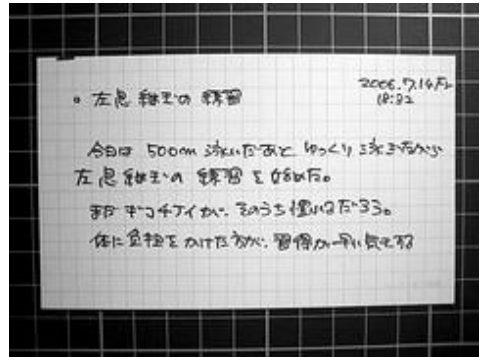 2006.7.14 Fri
18:32
• 左息継ぎの練習
今日は 500m 泳いだあと ゆっくり 泳ぎながら
左息継ぎの 練習を始めた。
まだ ギコチナイが、そのうち慣れるだろう。
体に負担をかけた方が、習得が早い気がする